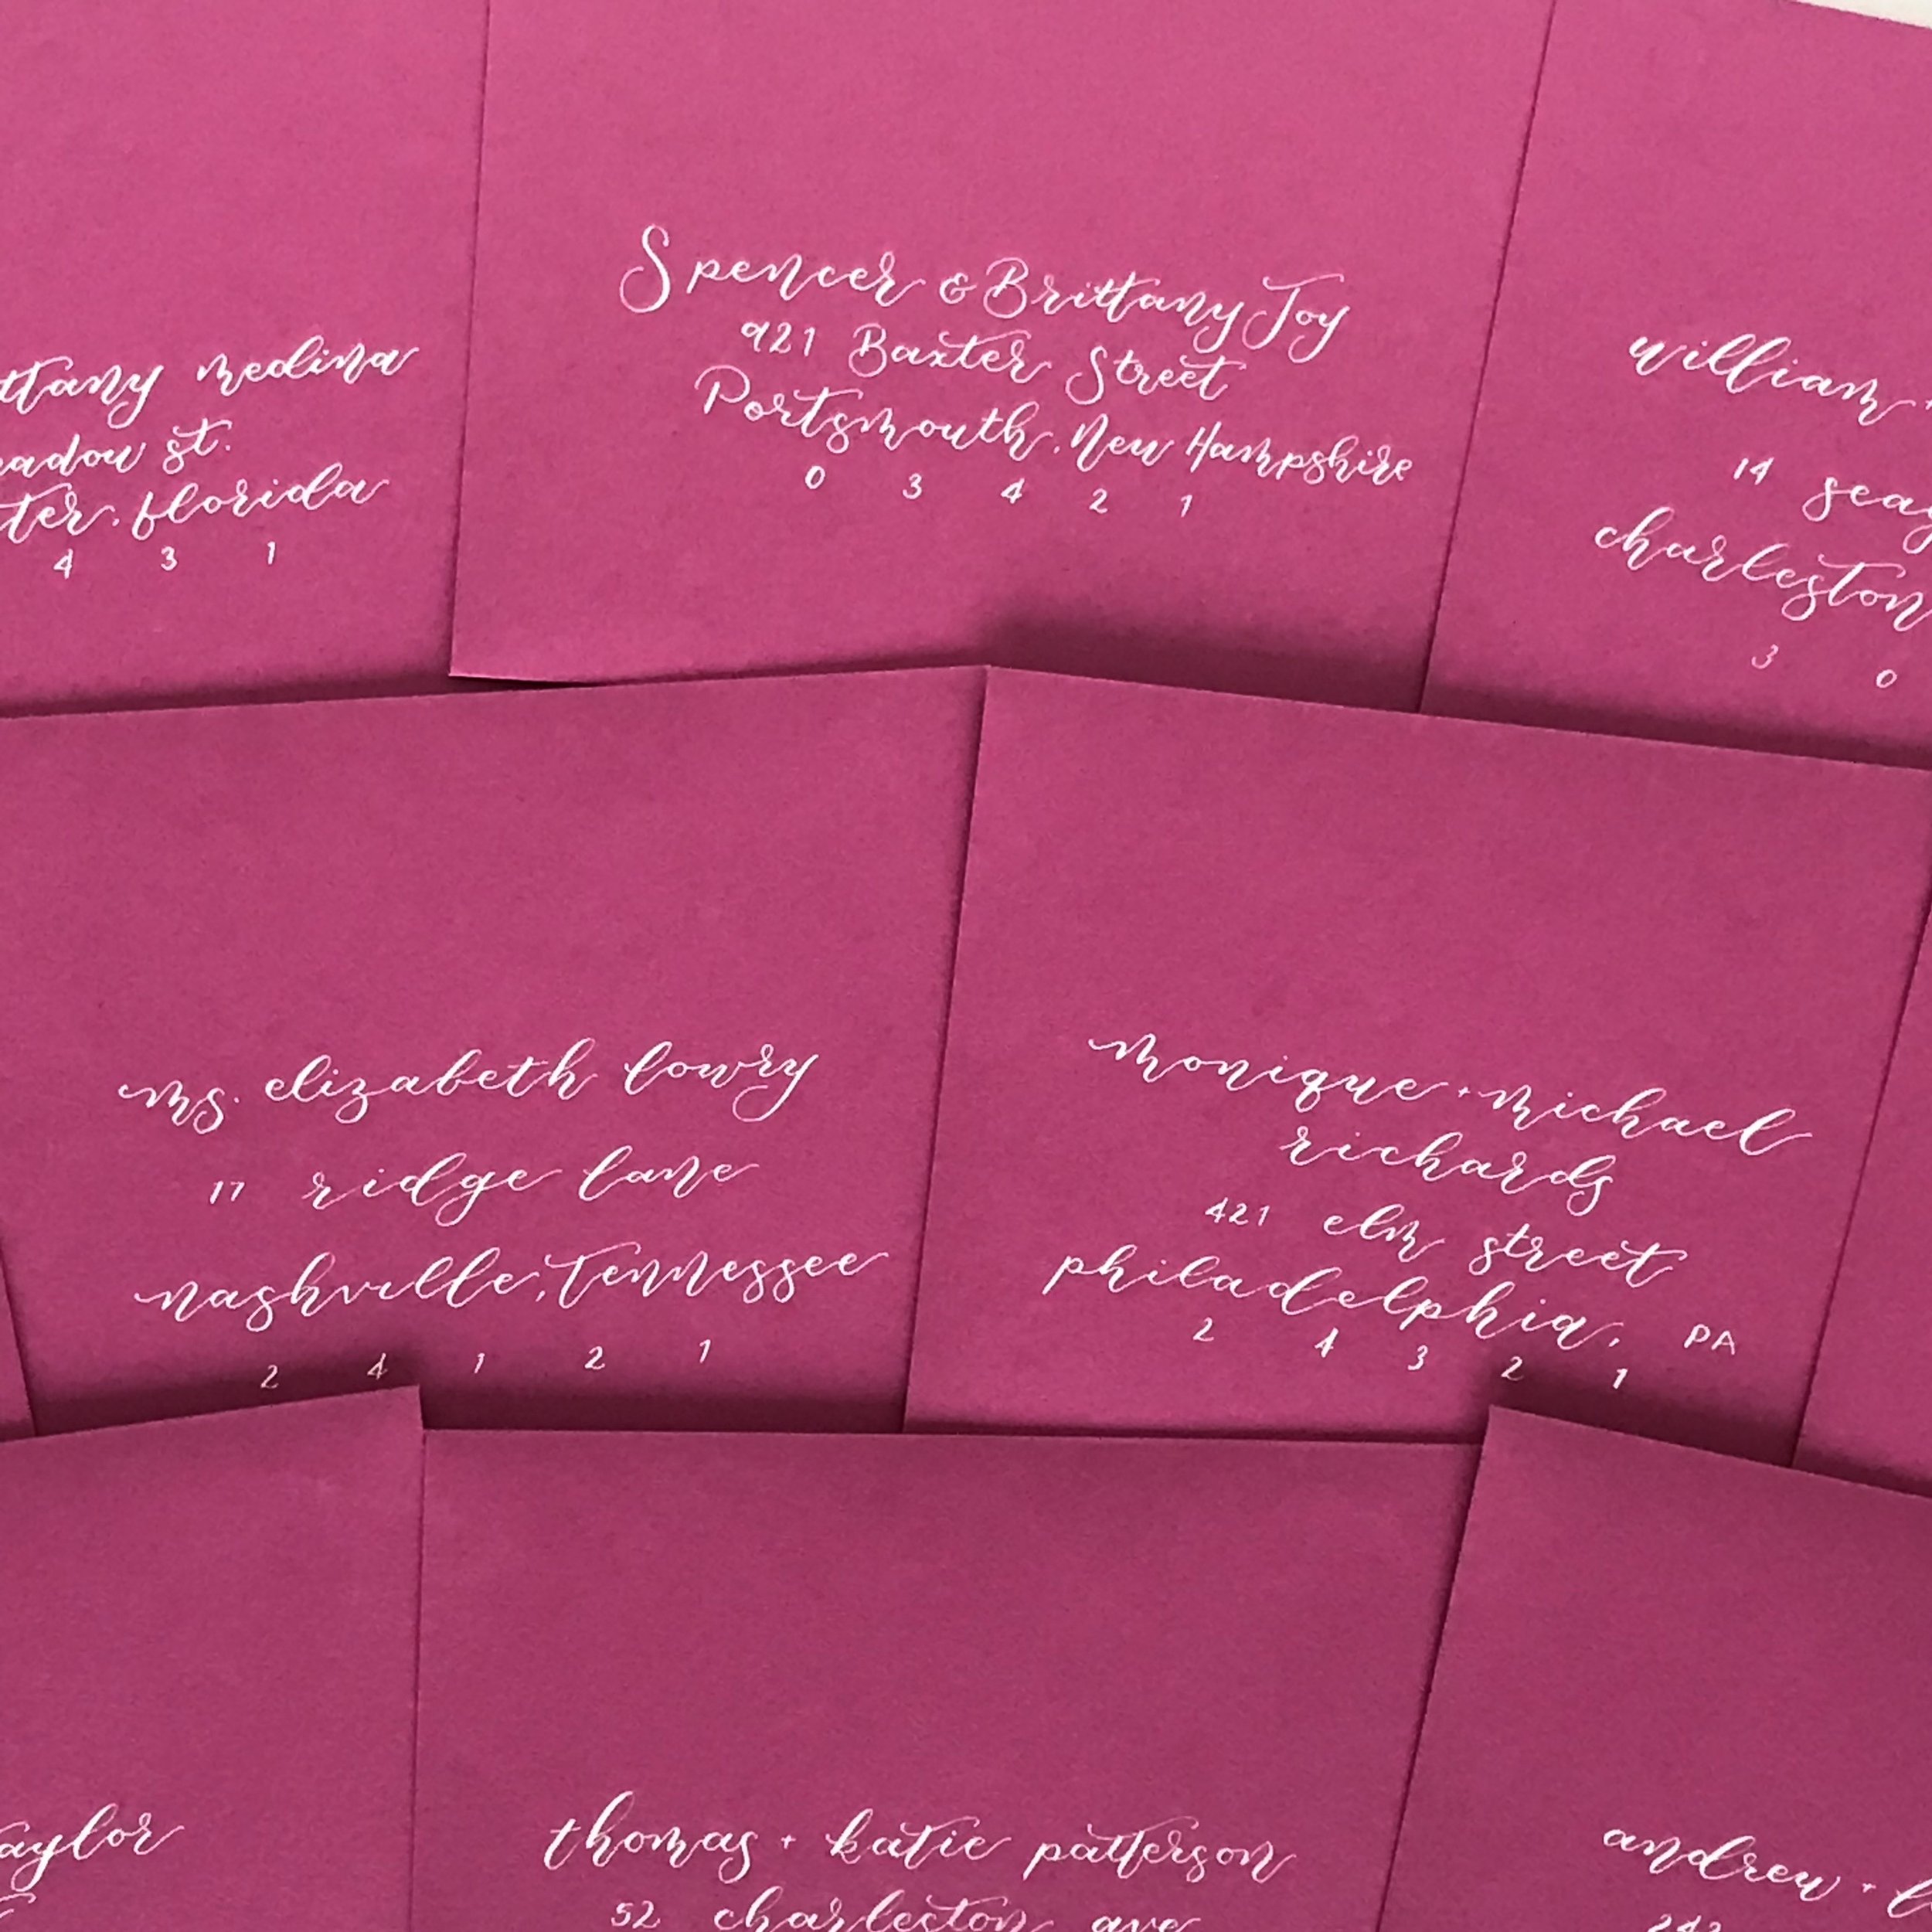 medina
st.
florida
4 3 1
Spencer & Brittany Joy
921 Baxter Street
Portsmouth, New Hampshire
0 3 4 2 1
william
14
charleston
3 0
ms. elizabeth lowry
17 ridge lane
nashville, Tennessee
2 4 1 2 1
monique + michael
richards
421 elm street
philadelphia, PA
2 4 3 2 1
aylor
thomas + katie patterson
52 charleston ave
andrew +